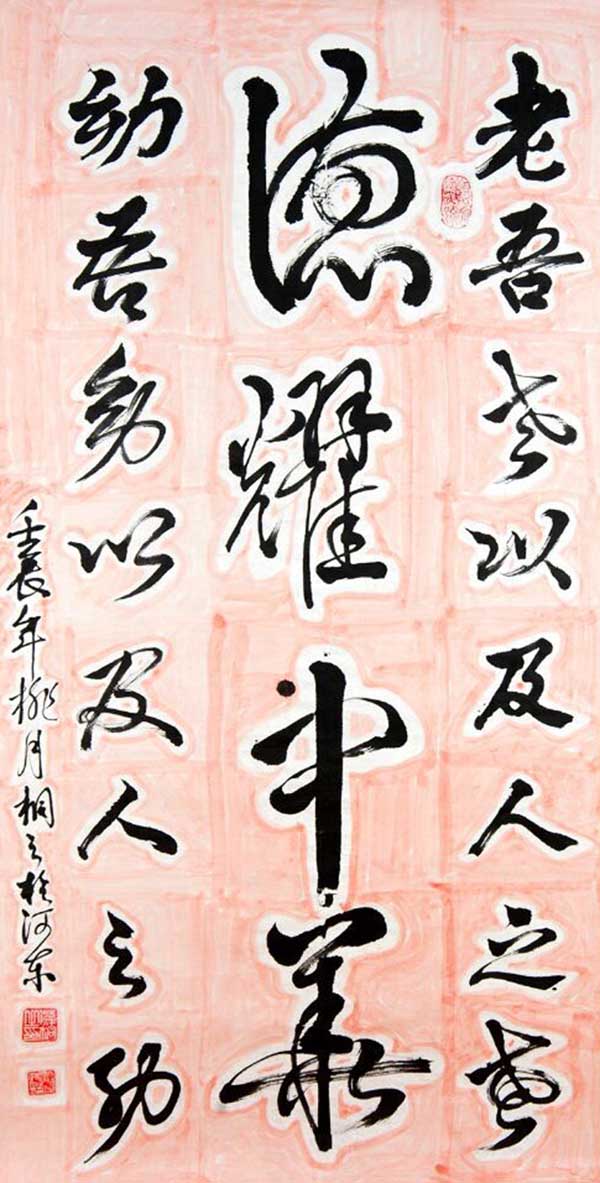 老吾老以及人之老
德耀中華
幼吾幼以及人之幼
壬辰年桃月桐之於河东